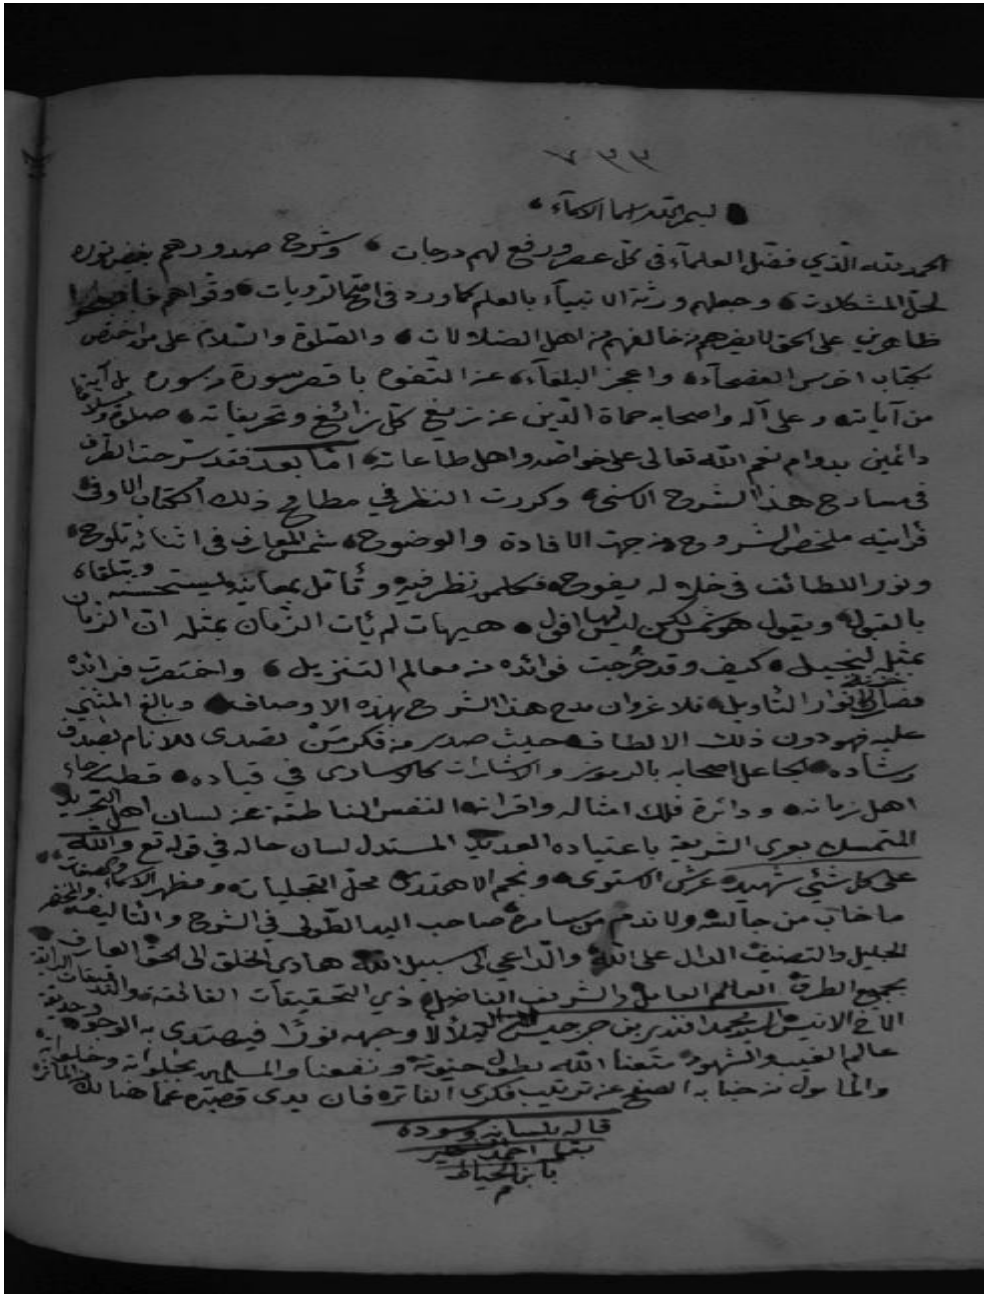 ٧٠٣٣
بسم الله
الحمد لله الذي فضل العلماء في كل عصر ورفع لهم درجات وشرح صدورهم بفيض نوره
لحل المشكلات وجعلهم ورثة الانبياء بالعلم كما ورد في الروايات وقواهم
ظاهرين على الحق لا يضرهم من خالفهم من اهل الضلالات والصلوة والسلام على من اختص
بكتاب اخرس الفصحاء واعجز البلغاء عن التفوه باقصر سورة من سوره بل آية
من آياته وعلى آله واصحابه حماة الدين عن زيغ كل زائغ وتحريفاته صلوة وسلاما
دائمين بدوام نعم الله تعالى على خواصه واهل طاعاته اما بعد فقد سرحت الطرف
في مسارح هذا الشرح الاسنى وكررت النظر في مطالع ذلك الكتاب الاوفى
فرأيته ملخص الشروح من جهة الافادة والوضوح شمس المعارف في اثنائه تلوح
ونور اللطائف في خلاله يفوح فكل من نظر فيه وتأمل بمعانيه يستحسنه ويتلقاه
بالقبول ويقول هو شمس لكن ليس لها افول هيهات لم يأت الزمان بمثله ان الزمان
بمثله لبخيل كيف وقد خرجت فوائده من معالم التنزيل واختصرت فرائده
انوار التأويل فلا غرو ان مدح هذا الشرح بهذه الاوصاف وبالغ المثني
عليه فهو دون ذلك الالطاف حيث صدر من فكر من تصدى للانام
وشاده بالرموز والاشارات كالاسارى في قياده قطب رحاء
اهل زمانه ودائرة فلك امثاله واقرانه النفس الناطقة عن لسان اهل التجريد
المتمسك بعرى الشريعة باعتياده العديد المستدل لسان حاله في قوله تع والله
على كل شئ شهيد عرش الاستوى ونجم الاهتدى محل التجليات ومظهر الاسماء والصفات
ما خاب من جالسه ولا ندم من سامره صاحب اليد الطولى في الشرح والتأليف
الجليل والتصنيف الدال على الله والداعي الى سبيل الله هادي الخلق الى الحق العارف
بجميع الطرق العالم العامل والشريف الفاضل ذي التحقيقات الفائقة والتدقيقات الرائقة
الاخ الانيس السيد محمد افندي بن جرجيس المتلألأ وجهه نورا فيهتدى به الوجود
عالم الغيب والشهود متعنا الله بطول حيوته ونفعنا والمسلمين بجلواته وخلواته
والمأمول من جنابه الصفح عن ترتيب فكرى الفاتره فان يدى قصيره عما هنالك
قاله بلسانه وسوده
بقلمه احمد الشهير
بابن الخياط
م